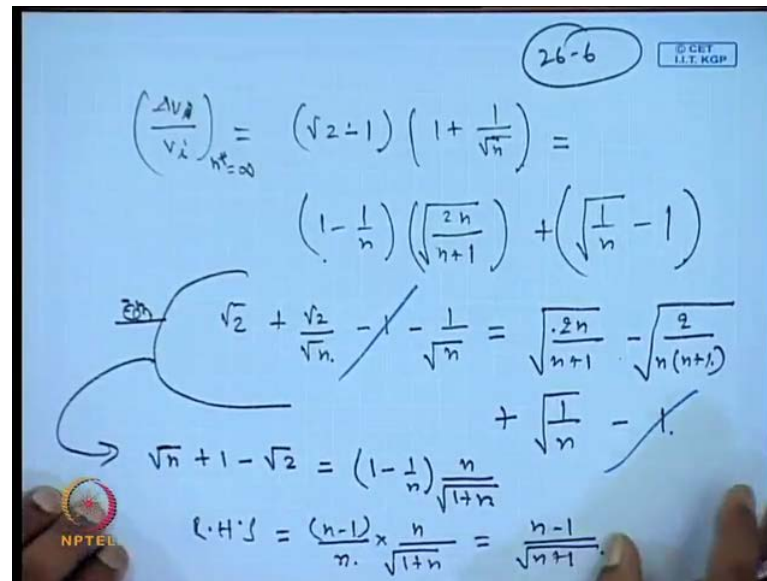 26-6
© CET
I.I.T. KGP
(Δv / v_i)_{n*=∞} = (√2 - 1) (1 + 1/√n) =
(1 - 1/n) (√(2n/(n+1))) + (√(1/n) - 1)
√2 + √2/√n - 1 - 1/√n = √(2n/(n+1)) - √(2/(n(n+1)))
+ √(1/n) - 1.
√n + 1 - √2 = (1 - 1/n) n/√(1+n)
R.H.S = (n-1)/n × n/√(1+n) = (n-1)/√(n+1).
NPTEL